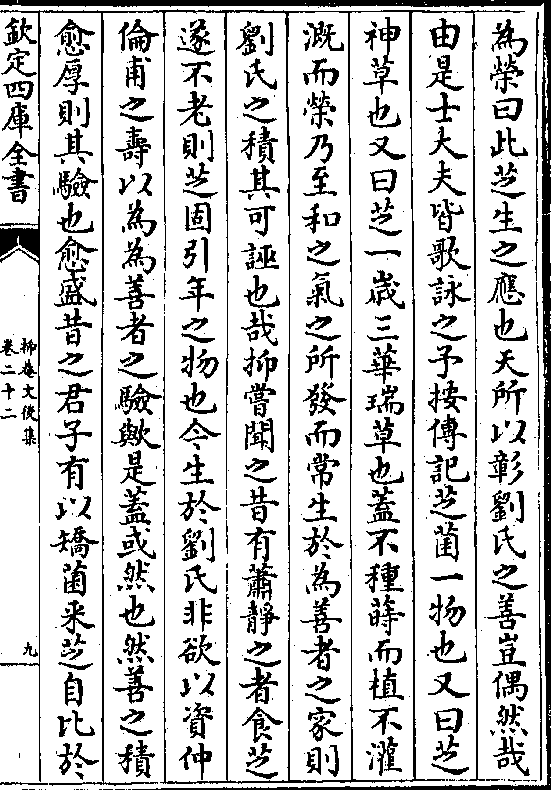 為榮曰此芝生之應也天所以彰劉氏之善豈偶然哉
由是士大夫皆歌詠之予按傳記芝菌一物也又曰芝
神草也又曰芝一歲三華瑞草也蓋不種蒔而植不灌
溉而榮乃至和之氣之所發而常生於為善者之家則
劉氏之積其可誣也哉抑嘗聞之昔有蕭靜之者食芝
遂不老則芝固引年之物也今生於劉氏非欲以資仲
倫甫之壽以為為善者之驗歟是蓋或然也然善之積
愈厚則其驗也愈盛昔之君子有以矯菌采芝自比於
欽定四庫全書
抑庵文後集
卷二十二
九